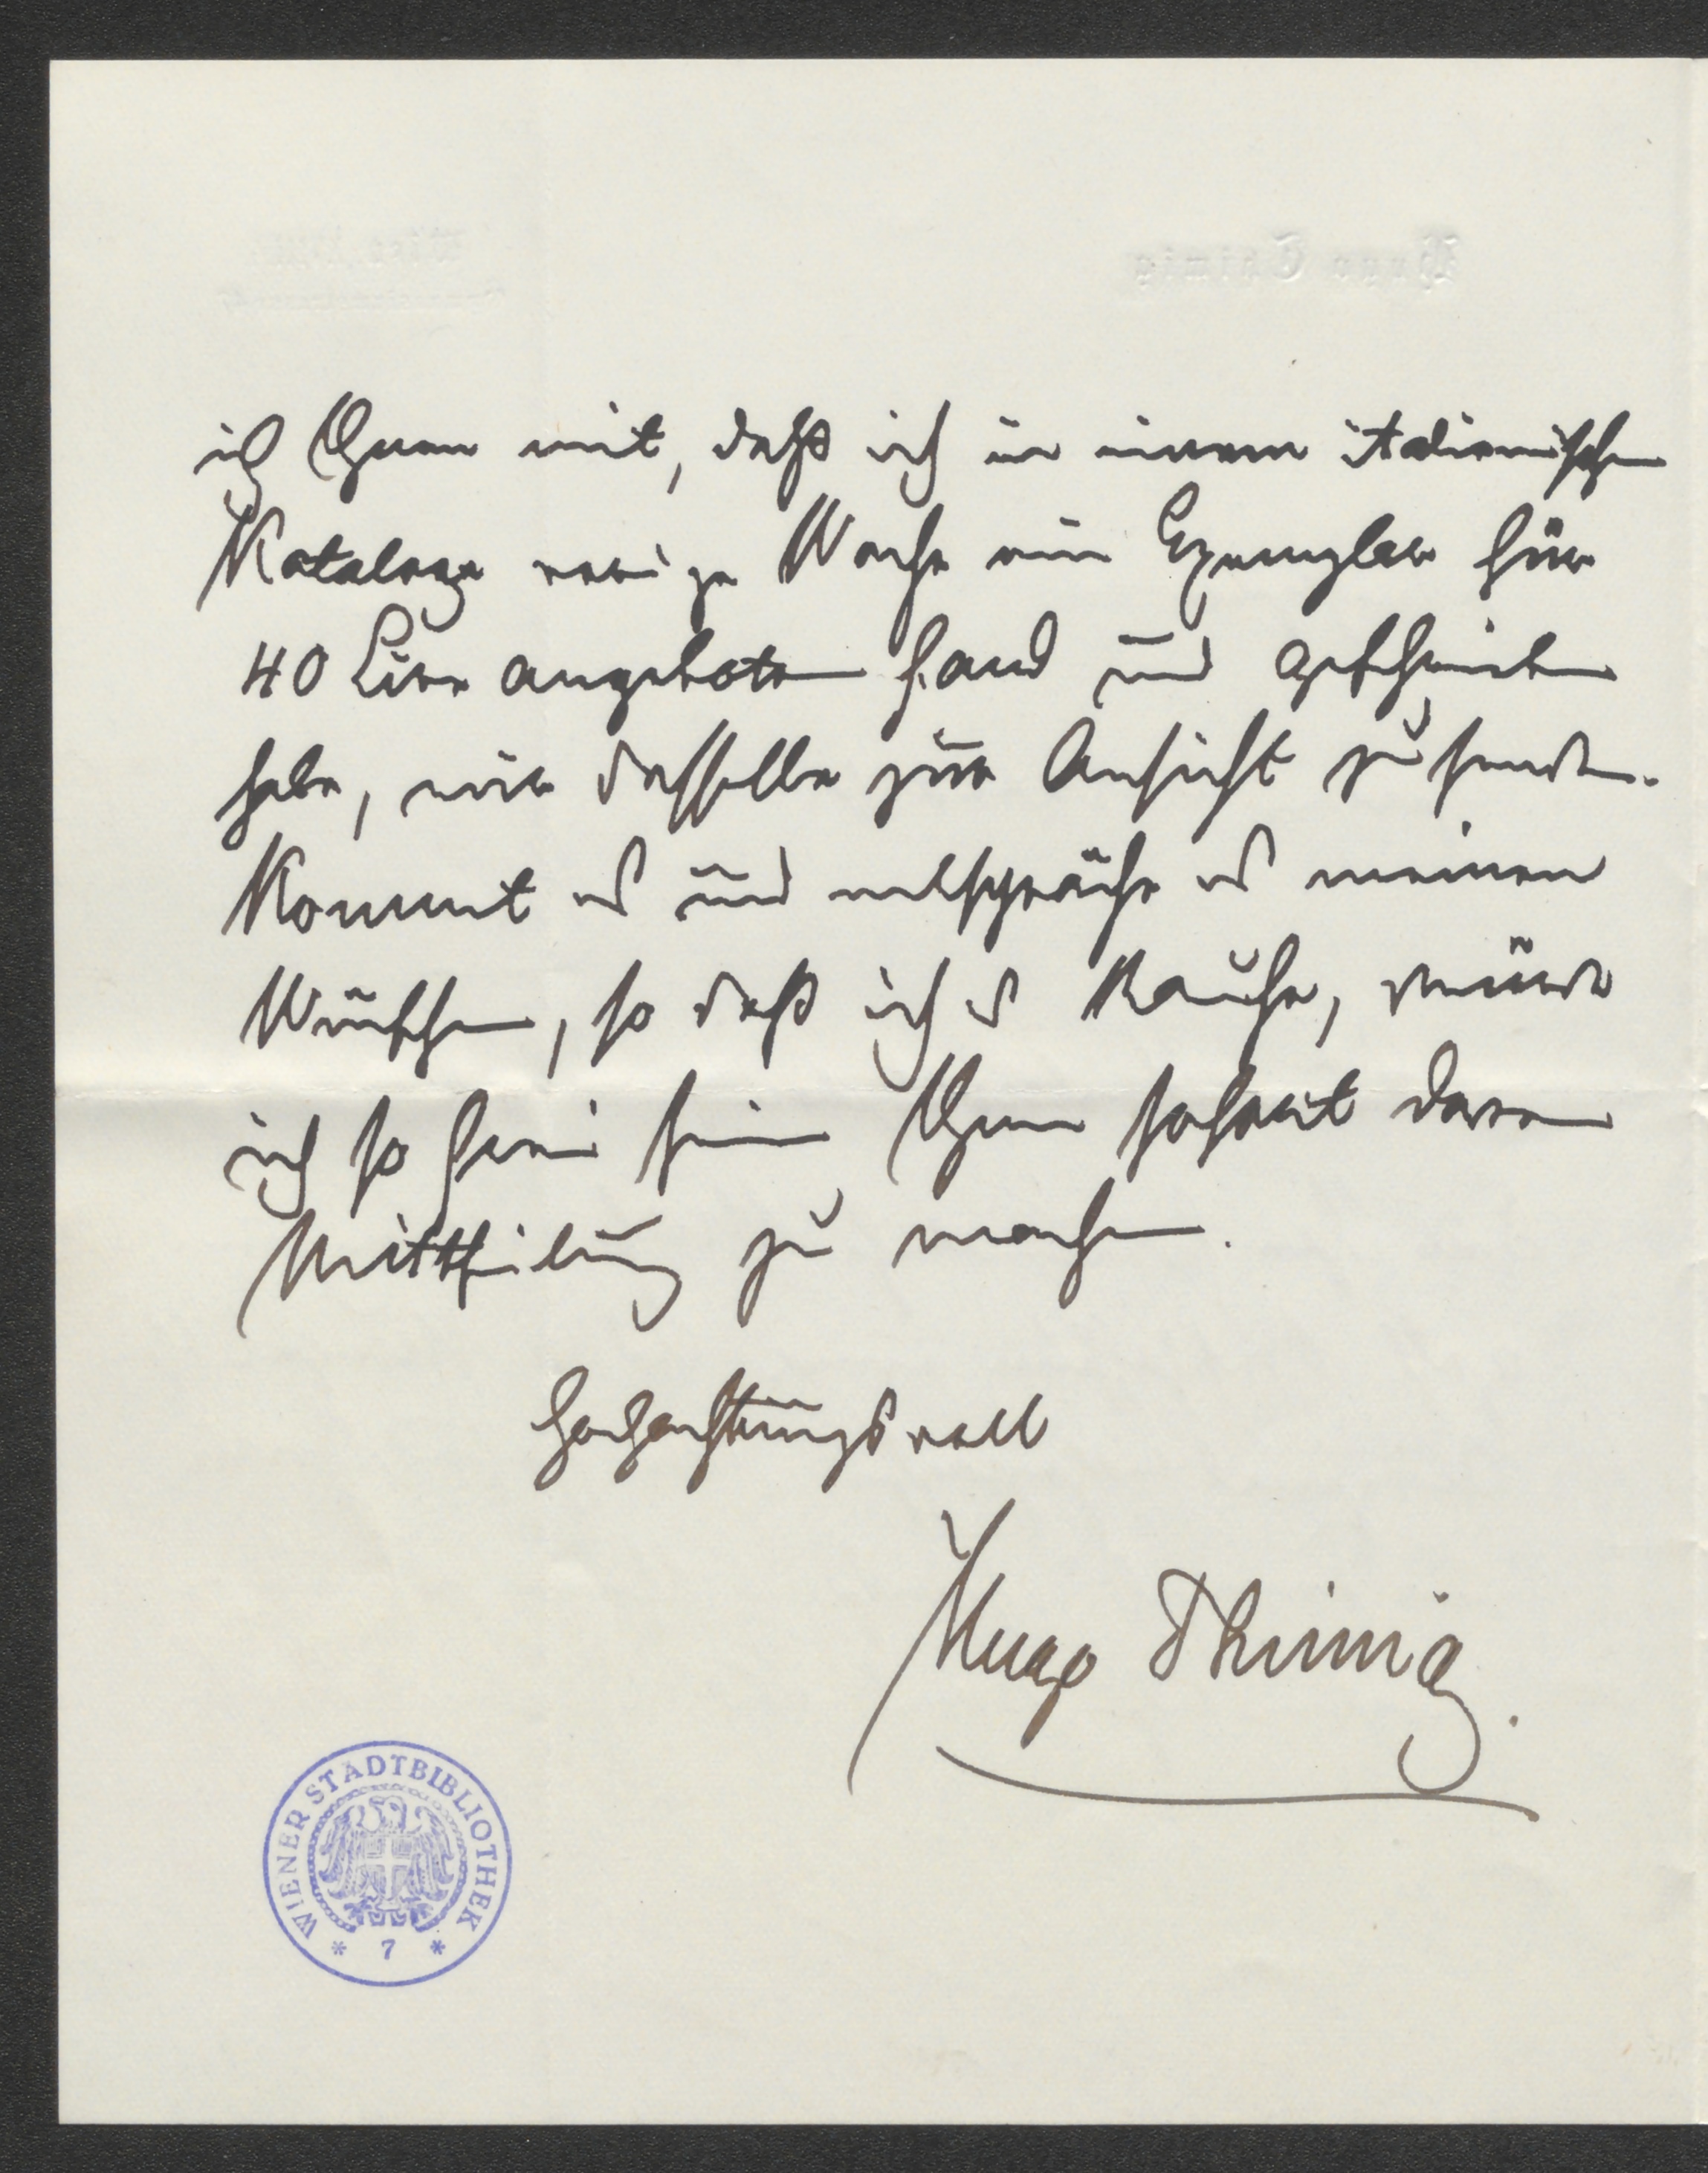 ich Ihnen mit, daß ich in einem italienischen
Kataloge vorige Woche ein Exemplar für
40 Lire angeboten fand und geschrieben
habe, mir dasselbe zur Ansicht zu senden.
Kommt es und entspräche es meinen
Wünschen, so daß ich es kaufe, würde
ich so frei sein Ihnen sofort davon
Mittheilung zu machen.
Hochachtungsvoll
Hugo Thimig.
WIENER STADTBIBLIOTHEK
* 7 *